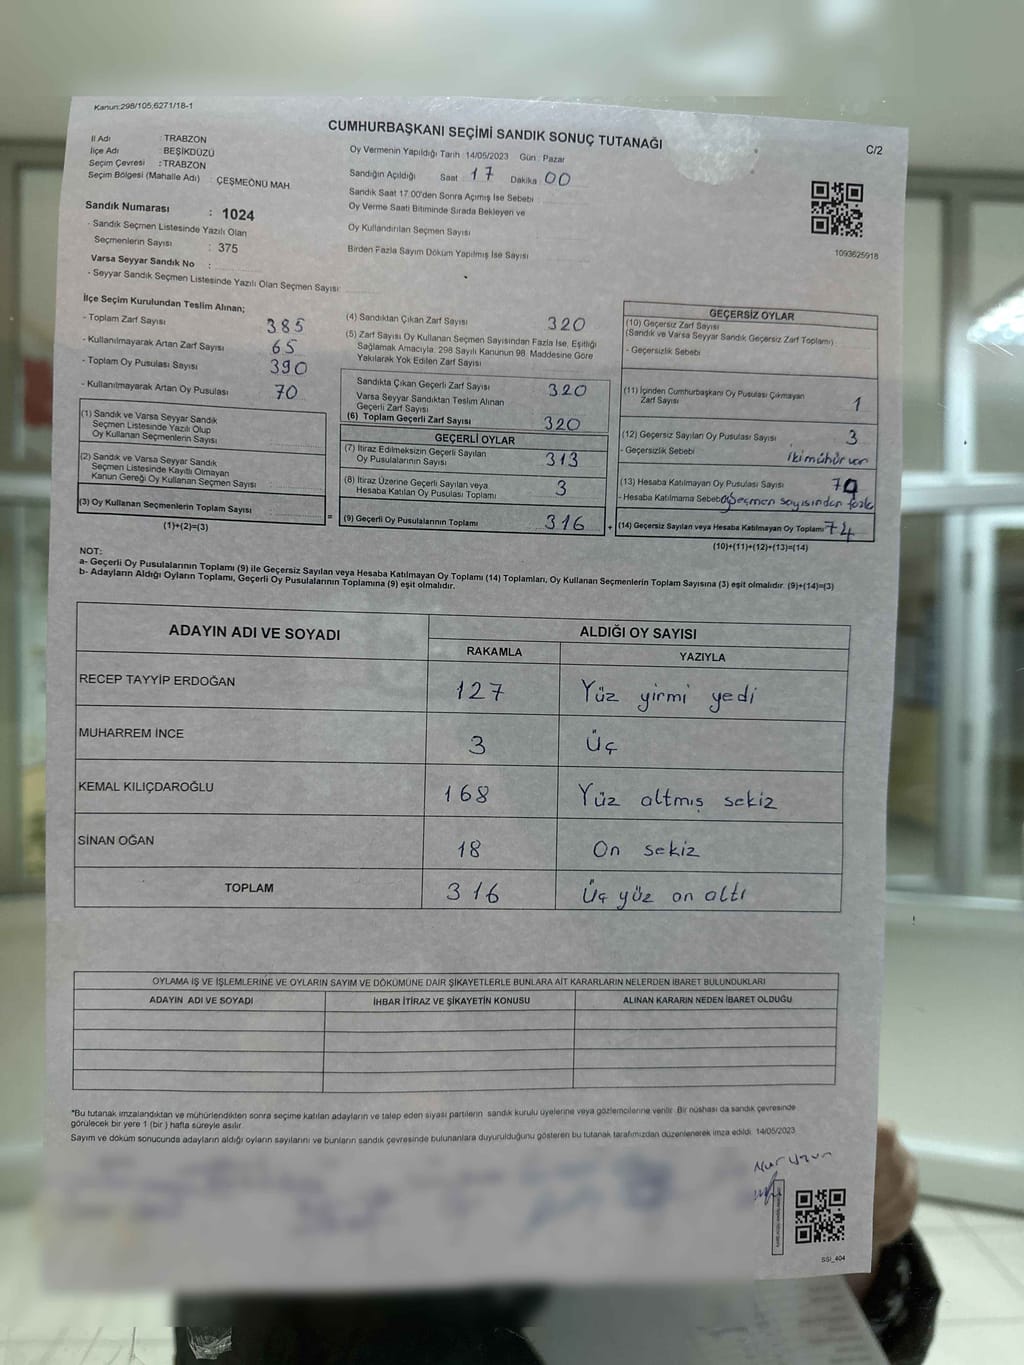 Kanun:298/105,6271/18-1
CUMHURBAŞKANI SEÇİMİ SANDIK SONUÇ TUTANAĞI
C/2
İl Adı : TRABZON
İlçe Adı : BEŞİKDÜZÜ
Seçim Çevresi : TRABZON
Seçim Bölgesi (Mahalle Adı) : ÇEŞMEÖNÜ MAH.
Sandık Numarası : 1024
- Sandık Seçmen Listesinde Yazılı Olan
Seçmenlerin Sayısı : 375
Varsa Seyyar Sandık No :
- Seyyar Sandık Seçmen Listesinde Yazılı Olan Seçmen Sayısı:
Oy Vermenin Yapıldığı Tarih : 14/05/2023 Gün : Pazar
Sandığın Açıldığı Saat 17 Dakika 00
Sandık Saat 17:00'den Sonra Açımış İse Sebebi
Oy Verme Saati Bitiminde Sırada Bekleyen ve
Oy Kullandırılan Seçmen Sayısı
Birden Fazla Sayım Döküm Yapılmış İse Sayısı
1093625918
İlçe Seçim Kurulundan Teslim Alınan;
- Toplam Zarf Sayısı 385
- Kullanılmayarak Artan Zarf Sayısı 65
- Toplam Oy Pusulası Sayısı 390
- Kullanılmayarak Artan Oy Pusulası 70
(1) Sandık ve Varsa Seyyar Sandık
Seçmen Listesinde Yazılı Olup
Oy Kullanan Seçmenlerin Sayısı
(2) Sandık ve Varsa Seyyar Sandık
Seçmen Listesinde Kayıtlı Olmayan
Kanun Gereği Oy Kullanan Seçmen Sayısı
(3) Oy Kullanan Seçmenlerin Toplam Sayısı
(1)+(2)=(3)
=
(4) Sandıktan Çıkan Zarf Sayısı 320
(5) Zarf Sayısı Oy Kullanan Seçmen Sayısından Fazla İse, Eşitliği
Sağlamak Amacıyla, 298 Sayılı Kanunun 98. Maddesine Göre
Yakılarak Yok Edilen Zarf Sayısı
Sandıkta Çıkan Geçerli Zarf Sayısı 320
Varsa Seyyar Sandıktan Teslim Alınan
Geçerli Zarf Sayısı
(6) Toplam Geçerli Zarf Sayısı 320
GEÇERLİ OYLAR
(7) İtiraz Edilmeksizin Geçerli Sayılan
Oy Pusulalarının Sayısı 313
(8) İtiraz Üzerine Geçerli Sayılan veya
Hesaba Katılan Oy Pusulası Toplamı 3
(9) Geçerli Oy Pusulalarının Toplamı 316
+
GEÇERSİZ OYLAR
(10) Geçersiz Zarf Sayısı
(Sandık ve Varsa Seyyar Sandık Geçersiz Zarf Toplamı)
- Geçersizlik Sebebi
(11) İçinden Cumhurbaşkanı Oy Pusulası Çıkmayan
Zarf Sayısı 1
(12) Geçersiz Sayılan Oy Pusulası Sayısı 3
- Geçersizlik Sebebi iki mühür var
(13) Hesaba Katılmayan Oy Pusulası Sayısı 70
- Hesaba Katılmama Sebebi Seçmen sayısından fazla
(14) Geçersiz Sayılan veya Hesaba Katılmayan Oy Toplamı 74
(10)+(11)+(12)+(13)=(14)
NOT:
a- Geçerli Oy Pusulalarının Toplamı (9) ile Geçersiz Sayılan veya Hesaba Katılmayan Oy Toplamı (14) Toplamları, Oy Kullanan Seçmenlerin Toplam Sayısına (3) eşit olmalıdır. (9)+(14)=(3)
b- Adayların Aldığı Oyların Toplamı, Geçerli Oy Pusulalarının Toplamına (9) eşit olmalıdır.
ADAYIN ADI VE SOYADI ALDIĞI OY SAYISI
RAKAMLA YAZIYLA
RECEP TAYYİP ERDOĞAN 127 Yüz yirmi yedi
MUHARREM İNCE 3 Üç
KEMAL KILIÇDAROĞLU 168 Yüz altmış sekiz
SİNAN OĞAN 18 On sekiz
TOPLAM 316 Üç yüz on altı
OYLAMA İŞ VE İŞLEMLERİNE VE OYLARIN SAYIM VE DÖKÜMÜNE DAİR ŞİKAYETLERLE BUNLARA AİT KARARLARIN NELERDEN İBARET BULUNDUKLARI
ADAYIN ADI VE SOYADI İHBAR İTİRAZ VE ŞİKAYETİN KONUSU ALINAN KARARIN NEDEN İBARET OLDUĞU
*Bu tutanak imzalandıktan ve mühürlendikten sonra seçime katılan adayların ve talep eden siyasi partilerin sandık kurulu üyelerine veya gözlemcilerine verilir. Bir nüshası da sandık çevresinde
görülecek bir yere 1 (bir ) hafta süreyle asılır.
Sayım ve döküm sonucunda adayların aldığı oyların sayılarını ve bunların sandık çevresinde bulunanlara duyurulduğunu gösteren bu tutanak tarafımızdan düzenlenerek imza edildi. 14/05/2023
Nur Uzun
SSİ_404